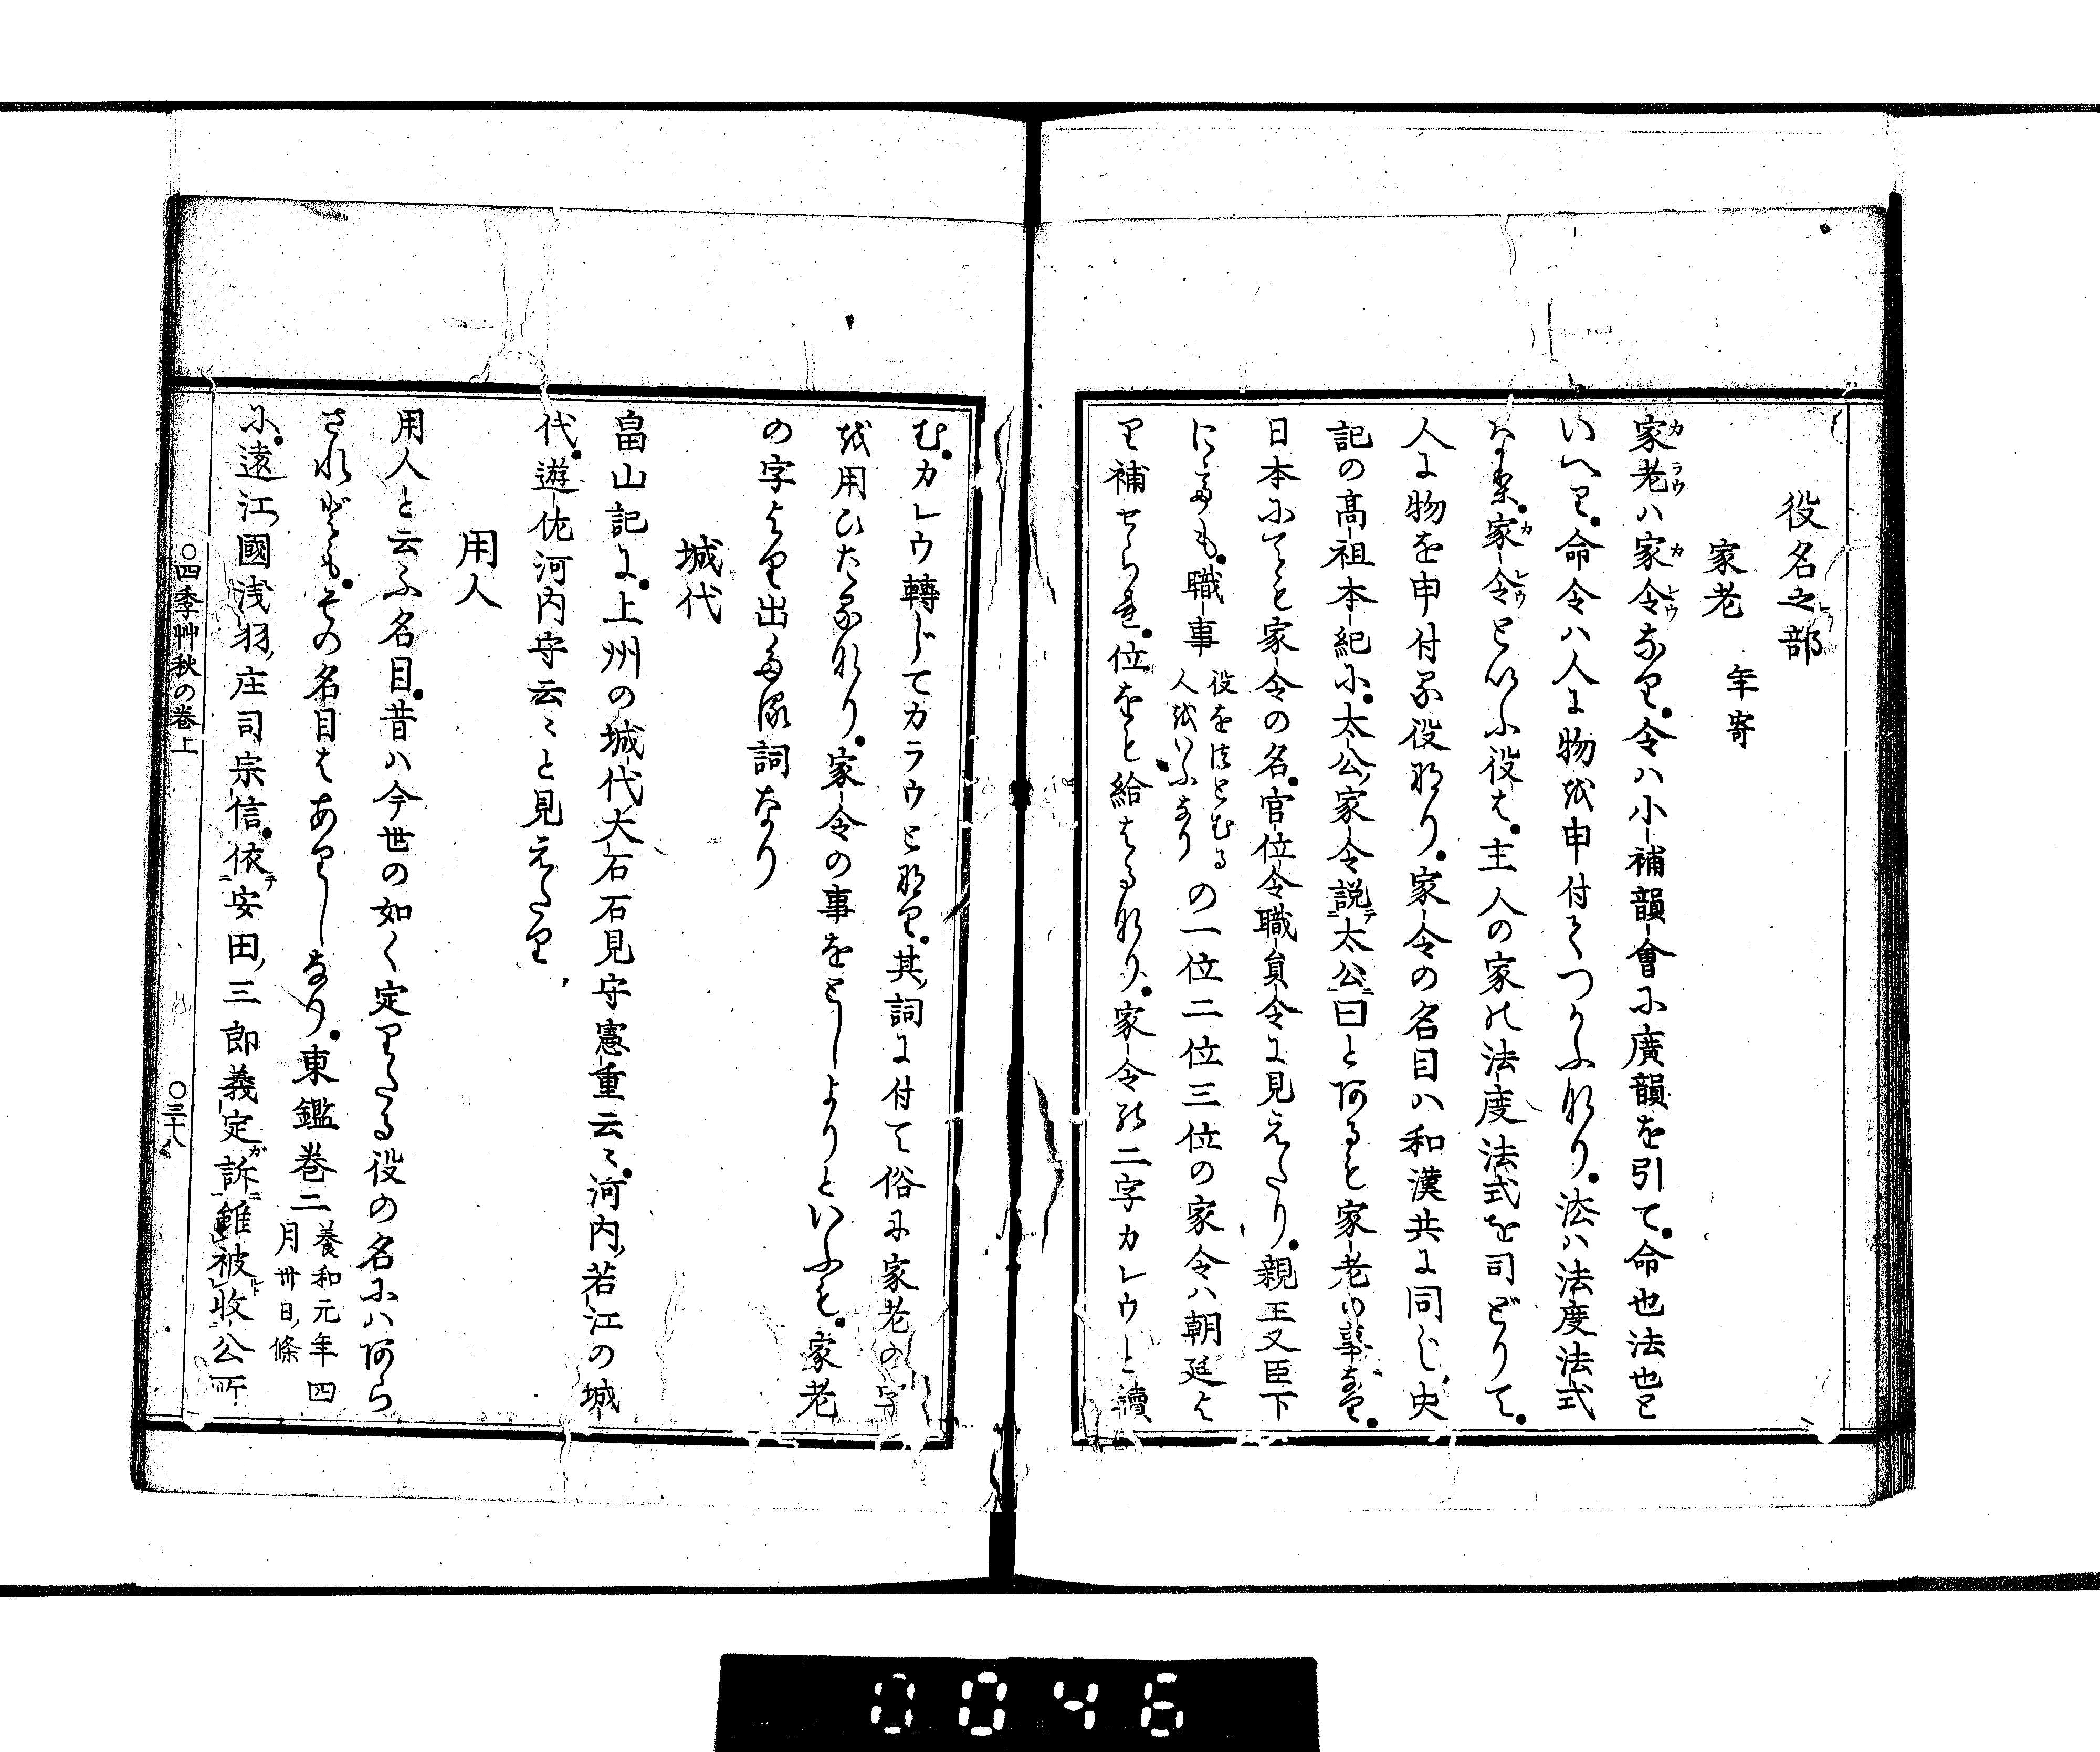 役名之部
家老　年寄
家老ハ家令なり。令ハ小補韻會に廣韻を引て。命也法也と
いへり。命令ハ人に物を申付てつかふなり。法ハ法度法式
なり。家令といふ役は。主人の家の法度法式を司どりて。
人に物を申付る役なり。家令の名目ハ和漢共に同じ。史
記の高祖本紀に。太公家令説テ太公ニ曰とあるも家老の事なり。
日本にても家令の名。官位令職員令に見えたり。親王又臣下
にても。職事役をつとむる人をいふなりの一位二位三位の家令ハ朝廷よ
り補せられ。位をも給はるなり。家令の二字カレウと讀
む。カレウ轉じてカラウとなり。其詞に付て俗に家老の字
を用ひたるなり。家令の事をとしよりといふも。家老
の字より出たる詞なり
城代
畠山記に。上州の城代大石石見守憲重云々。河内若江の城
代。遊佐河内守云々と見えたり
用人
用人と云ふ名目。昔ハ今世の如く定りたる役の名にハあら
されども。その名目はありしなり。東鑑巻二養和元年四月卅日條
に。遠江國浅羽庄司宗信。依テ安田三郎義定ガ訴ニ雖被レ收二公所
○四季艸秋の巻上　○三十八
0046